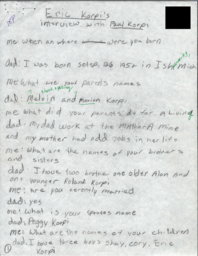 Eric Korpi's
interview with Korpi
me: when an where were you born
dad: I was born 1952 in Ish
me: what are your names
dad: Melvin and Korpi
me: what did your parents do for a living
dad: My dad work at the Mather A mine
and my mother had odd jobs in her life
me: what are the names of your brothers
and sisters
dad: I have two brothers one older Alan and
one younger Korpi
me: are you currently married
dad: yes
me: what is your spouses name
dad: Peggy Korpi
me: what are the names of your children
dad: I have three boys cory, Eric
Korpi
①